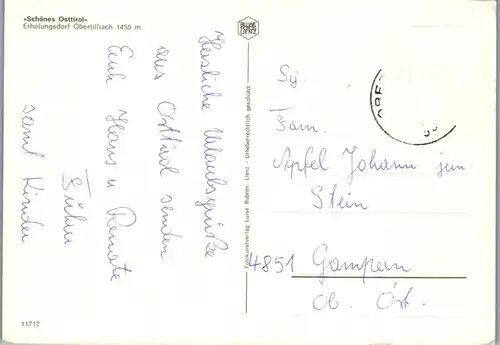 »Schönes Osttirol«
Erholungsdorf Obertilliach 1450 m
Herzliche Urlaubsgrüße
aus Osttirol senden
Euch Hans u Renate
samt Kinder
Farbkunstverlag Luise Rubner, Lienz - Urheberrechtlich geschützt
Fam.
Apfel Johann jun.
Stein
4851 Gampern
Ob. Öst.
11717